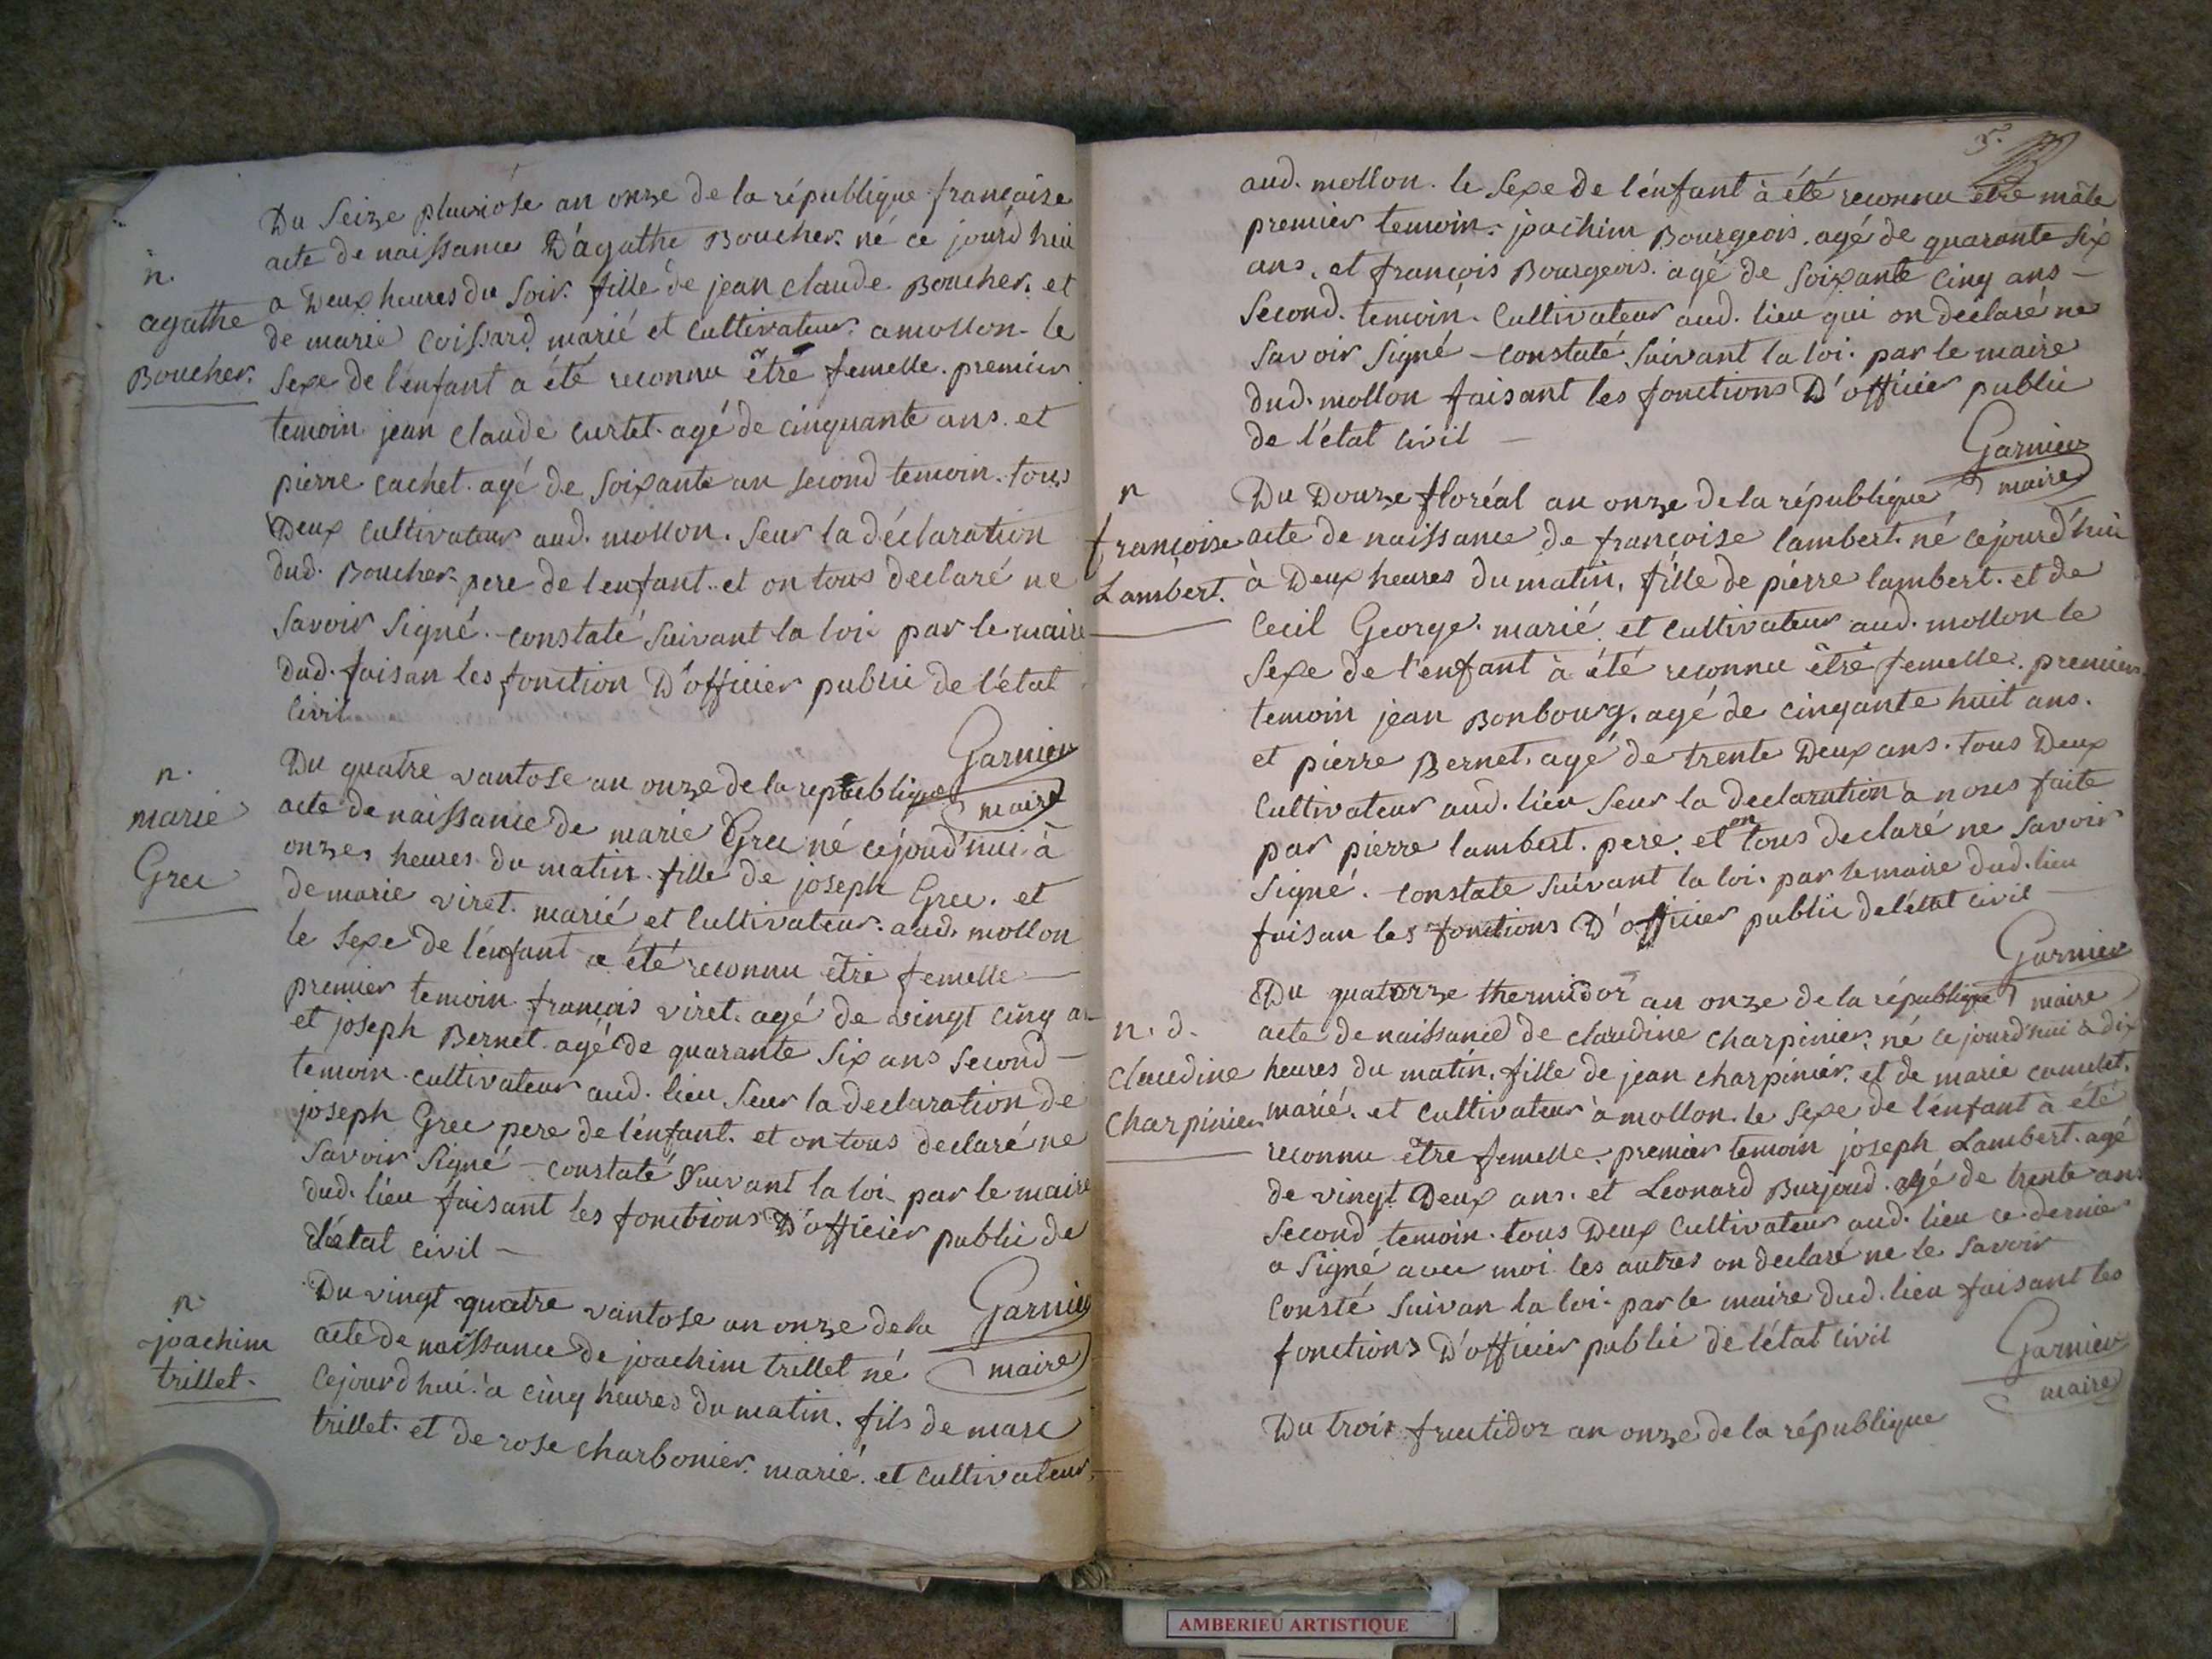 Du Seize pluviôse an onze de la république française
acte de naissance D'agathe Boucher. né ce jourd'hui
n.
agathe
Boucher.
a Deux heures du Soir. fille de jean claude Boucher. et
de marie Coissard marié et Cultivateur. a mollon. le
Sexe de l'enfant a été reconnu être femelle. premier
temoin jean Claude Curtet. agé de cinquante ans. et
pierre Cachet. agé de Soixante an Second temoin. tous
Deux Cultivateur aud. mollon. Seur la déclaration
dud. Boucher. pere de l'enfant. et on tous declaré ne
Savoir Signé. constaté Suivant la loi par le maire
dud. faisan les fonction D'officier public de l'état
Civil
Garnier
maire
Du quatre vantose an onze de la republique
n.
marie
Grec
acte de naissance de marie Grec né cejoud'hui à
onzes heures du matin. fille de joseph Grec. et
de marie viret. marié et Cultivateur. aud. mollon
le Sexe de l'enfant a été reconnu être femelle
premier temoin françois viret. agé de vingt Cinq an
et joseph Bernet agé de quarante Six ans Second
temoin. cultivateur aud. lieu Seur la declaration de
joseph Grec pere de l'énfant. et on tous declaré ne
Savoir Signé - constaté Suivant la loi par le maire
dud. lieu faisant les fonctions D'officier public de
l'état civil -
Garnier
maire
Du vingt quatre vantose an onze de la
n.
joachim
trillet.
acte de naissance de joachim trillet né
Cejourd'hui a cinq heures du matin. fils de marc
trillet. et de rose charbonier. marié. et Cultivateur.
5.
aud. mollon. le Sexe de l'énfant à été reconnu être mâle
premier temoin. joachim Bourgeois. agé de quarante Six
ans. et françois Bourgeois. agé de Soixante Cinq ans -
Second. temoin. Cultivateur aud. lieu qui on declaré ne
Savoir Signé - constaté Suivant la loi. par le maire
dud. mollon faisant les fonctions D'officier public
de l'état Civil -
Garnier
maire
Du Douze floréal an onze de la république
n
françoise
Lambert.
acte de naissance de françoise lambert. né cejourd'hui
à Deux heures du matin. fille de piérre lambert. et de
Cecil George. marié. et Cultivateur aud. mollon le
Sexe de l'enfant à été reconnu être femelle. premier
temoin jean Bonbourg. agé de cinqante huit ans.
et piérre Bernet. agé de trente Deux ans. tous Deux
Cultivateur aud. lieu Seur la declaration a nous faite
par pierre lambert. pere. et on tous declaré ne Savoir
Signé. constate Suivant la loi. par le maire dud. lieu
faisan les fonctions D'officier public de l'état civil -
Garnier
maire
Du quatorze thermidor an onze de la république
n. d.
Claudine
Charpinier
acte de naissance de claudine charpinier. né ce jourd'hui a dix
heures du matin. fille de jean charpiniér. et de marie camelet.
marié. et Cultivateur a mollon. le Sexe de l'énfant à été
reconnu être femelle. premier temoin joseph Lambert. agé
de vingt Deux ans. et Léonard Burjoud. agé de trente ans
Second temoin. tous Deux Cultivateur aud. lieu ce dernier
a Signé avec moi les autres on declaré ne le Savoir
Consté Suivan la loi. par le maire dud. lieu faisant les
fonctions D'officier public de l'état Civil
Garnier
maire
Du trois fructidor an onze de la république
AMBERIEU ARTISTIQUE